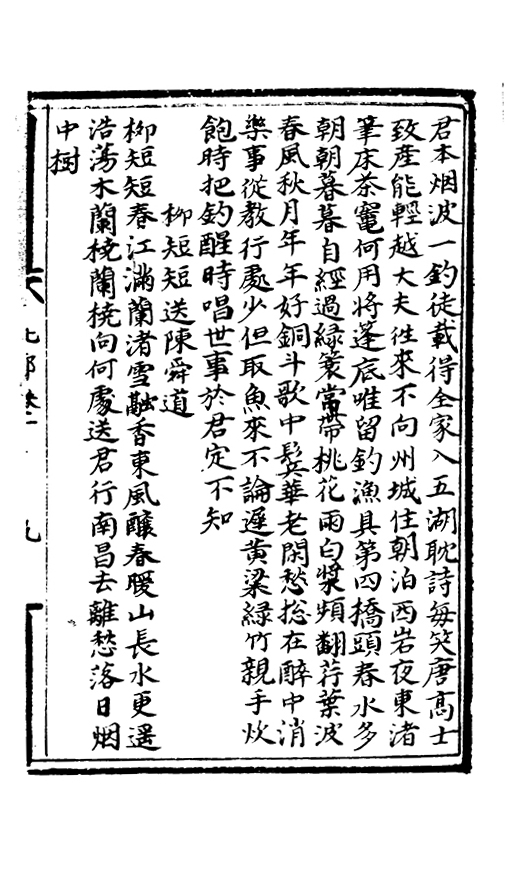 君本烟波一釣徒載得全家入五湖耽詩每笑唐高士
致産能輕越大夫徃來不向州城住朝泊西岩夜東渚
筆床茶竈何用將蓬底唯留釣漁具第四橋頭春水多
朝朝暮暮自經過緑簑常帶桃花雨白槳頻翻荇葉波
春風秋月年年好銅斗歌中鬂華老閑愁捴在醉中消
樂事從教行處少但取魚來不論遲黄粱緑竹親手炊
飽時把釣醒時唱世事於君定不知
柳短短送陳舜道
柳短短春江滿蘭渚雪融香東風釀春暖山長水更遥
浩蕩木蘭橈蘭橈向何處送君行南昌去離愁落日烟
中樹
九